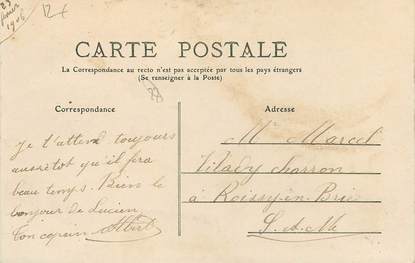 23
février
1906
12 +
CARTE POSTALE
La Correspondance au recto n'est pas acceptée par tous les pays étrangers
(Se renseigner à la Poste)
Correspondance
Adresse
Je t'attend toujours
aussitot qu'il fera
beau temps. Bien le
bonjour de Lucien
Ton copain Albert
Mr Marcel
Vilady charron
à Roissy-en-Brie
S.-et-M.